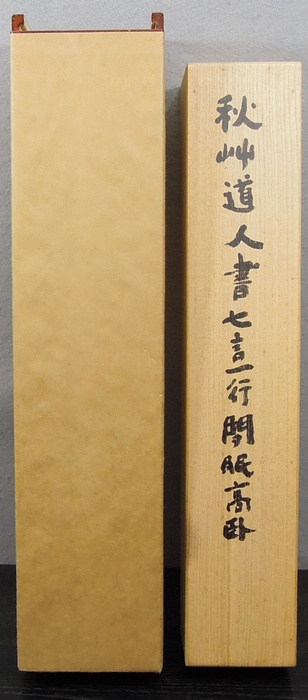 秋艸道人書七言一行閑眠高卧